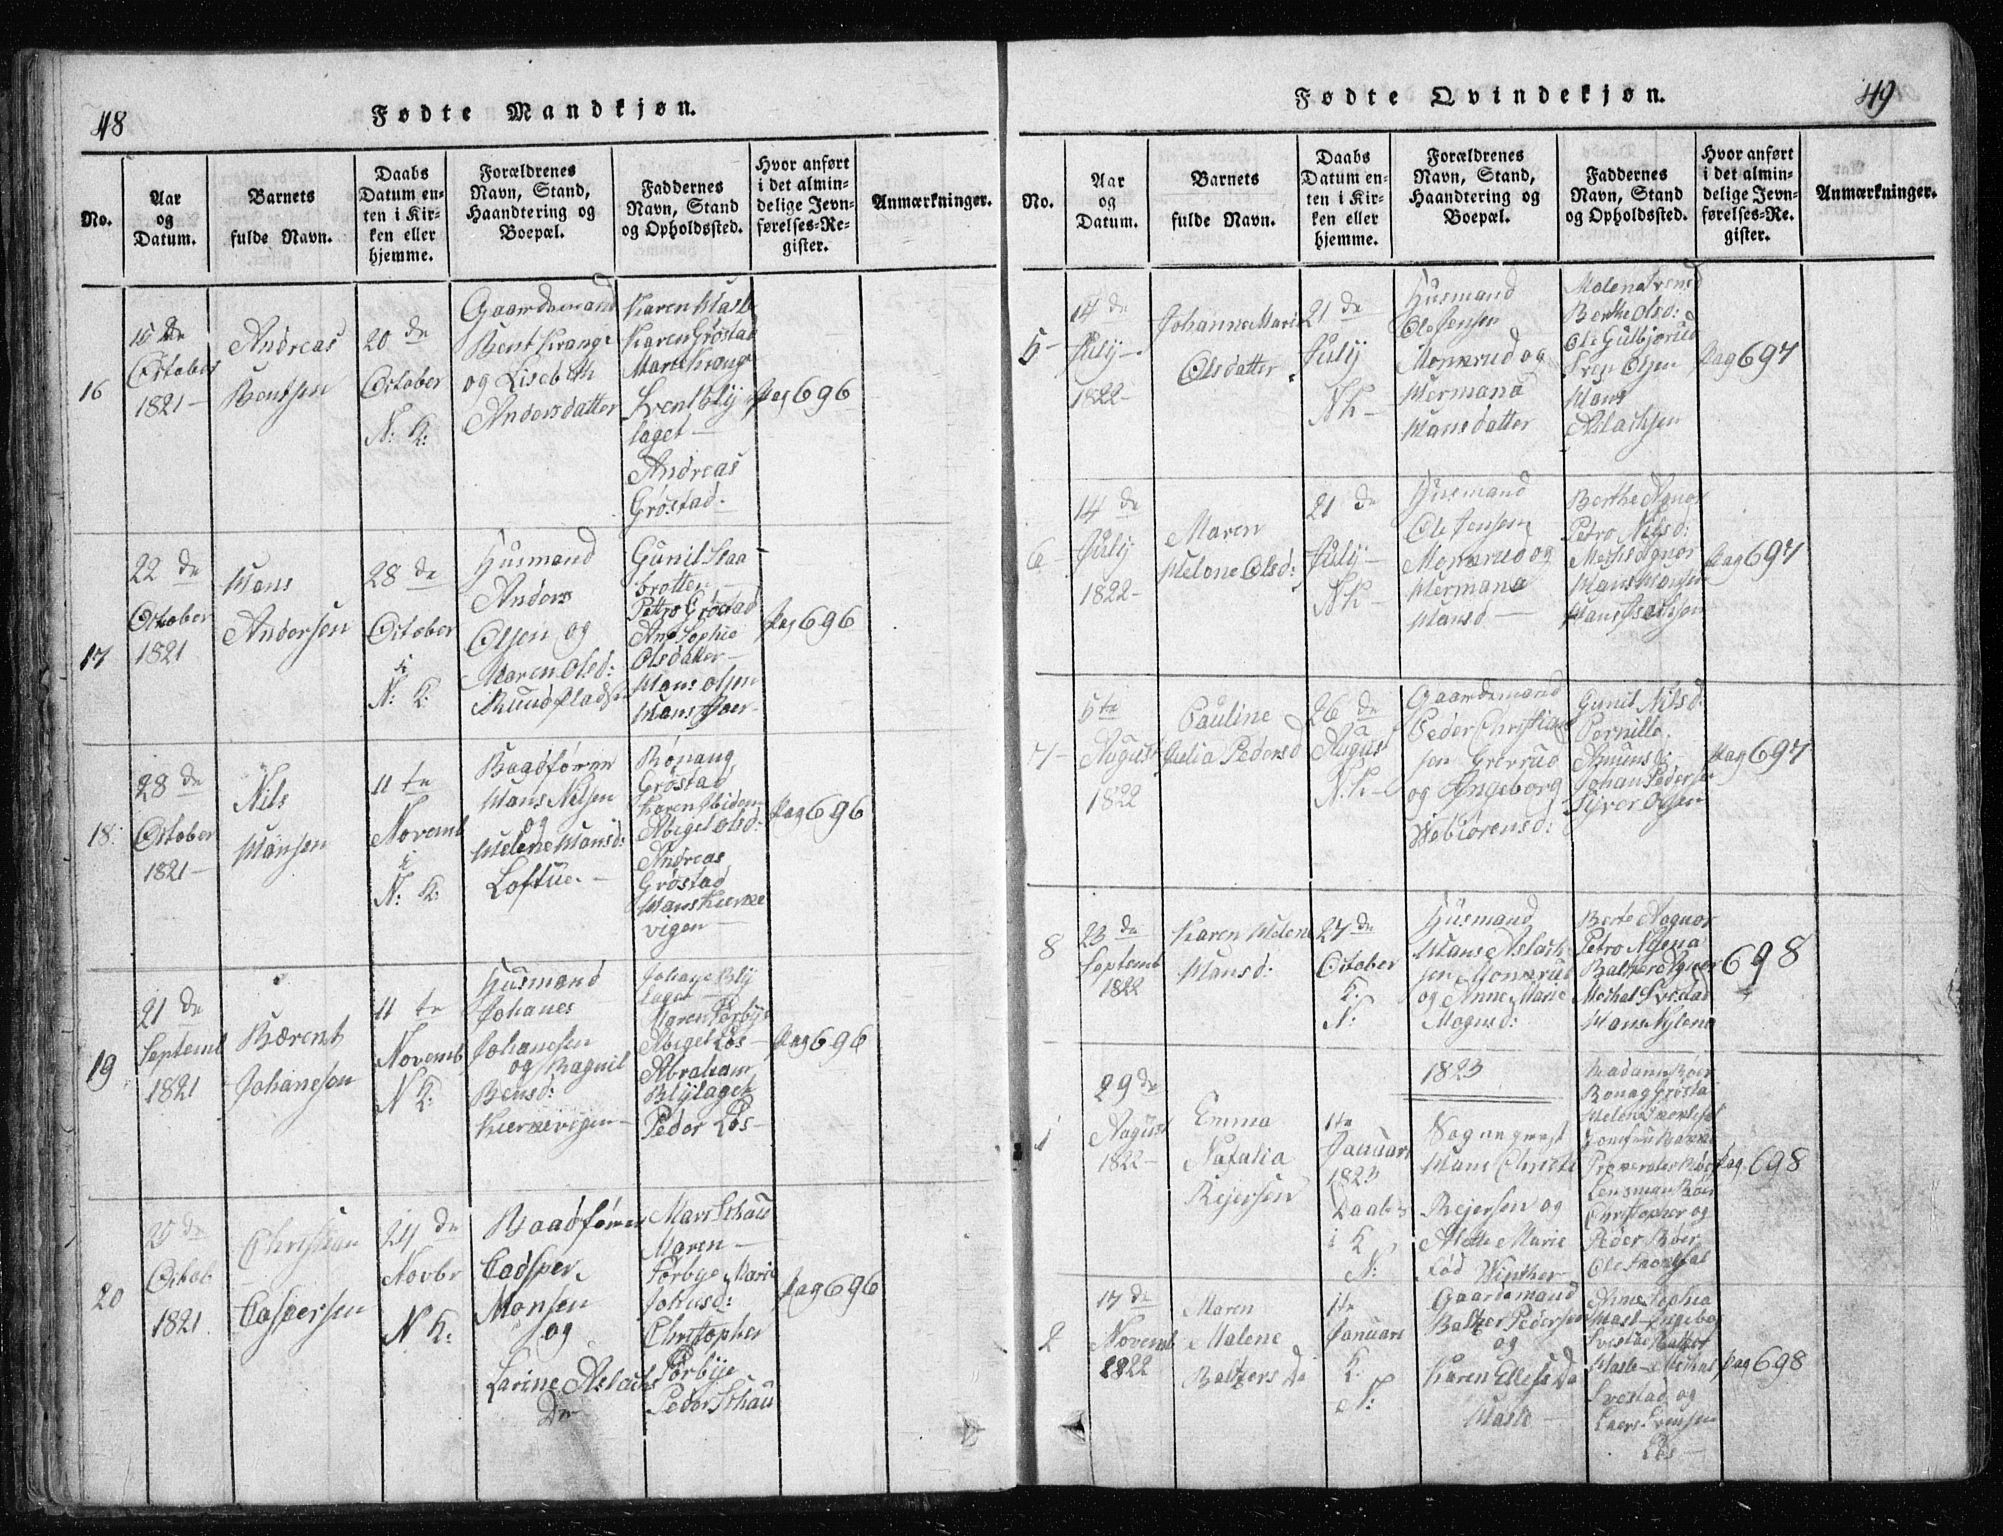 48
Fødte Mandkjøn.
No.
Aar
og
Datum.
Barnets
fulde Navn.
Daabs
Datum en-
ten i Kir-
ken eller
hjemme.
Forældrenes
Navn, Stand,
Haandtering og
Boepæl.
Faddernes
Navn, Stand
og Opholdssted.
Hvor anført
i det almin-
delige Jevn-
førelses-Re-
gister.
Anmærkninger.
16
15 de
October
1821
Andreas
Bentsen
20 de
October
N: K:
Gaardemand
Bent Krange
og Lisebeth
Andersdatter
Karen
Karen Grøstad
Svent Bly
laget
Andreas
Grøstad
Pag 696
17
22 de
October
1821
Hans
Andersen
28 de
October
i
N: K:
Husmand
Anders
Olsen og
Maren Olsd:
Gunil Skaa
brotten
Petro Grøstad
Ane Sophie
Olsdatter
Hans Olsen
Pag 696
18
28 de
October
1821
Nils
Hansen
11 te
Novemb
i
N: K:
Baadfører
Hans Nilsen
og
Helene Hansd:
Loftue
Rønaug
Grøstad
Karen Ibiden
Abigel Olsd:
Andreas
Grøstad
Hans Kierne
vigen
Pag 696
19
21 de
Septemb
1821
Bærent
Johanesen
11 te
Novemb
N K:
Husmand
Johanes
Johanesen
og Ragnil
Bensd:
Kiernevigen
Johane Bly
laget
Maren Torbye
Abigel Løs
Abraham
Blylaget
Peder Løs
Pag 696
20
25 de
Octob
1821
Christian
Caspersen
24 de
Novbr
N K:
Baadfører
Casper
Monsen
og
Larine Aslachs
Dr
Mari Schau
Maren
Torbye Marie
Johnsd:
Christopher
Torbye
Peder Schau
Pag 696
49
Fødte Qvindekjøn.
No.
Aar
og
Datum.
Barnets
fulde Navn.
Daabs
Datum en-
ten i Kir-
ken eller
hjemme.
Forældrenes
Navn, Stand,
Haandtering og
Boepæl.
Faddernes
Navn, Stand
og Opholdssted.
Hvor anført
i det almin-
delige Jevn-
førelses-Re-
gister.
Anmærkninger.
5
14 de
July
1822
Johanne Marie
Olsdatter
21 de
July
N K
Husmand
Ole Jensen
Monerud og
Hermana
Hansdatter
Berthe Olsd:
Ole Gulbjørud
Sven Olsen
Hans
Aslachsen
Pag 697
6
14 de
July
1822
Maren
Helene Olsd:
21 de
July
N K
Husmand
Ole Jensen
Monerud og
Hermana
Hansd
Berthe Agnor
Petro Nilsd:
Hans Hansen
Hans Aslachsen
Pag 697
7
5te
August
1822
Pauline
Julia Pedersd
26 de
August
N. K
Gaardemand
Peder Christian
sen Grerud
og Ingeborg
Gunil Nilsd:
Pernille
Amunsd:
Johan Pedersen
Syver Olsen
Pag 697
8
23 de
Septemb
1822
Karen Helene
Hansd:
27 de
October
K.
N:
Husmand
Hans Aslach
sen Monerud
og Anne Marie
Mognsd:
Berte Aognor
Michal Svestad
Hans Nylena
698
1823
1
29 de
August
1822
Emma
Natalia
Rejersen
1te
Januari
1823
Daabs
i K
N:
Sognepræst
Hans Christi
Rejersen og
Alette Marie
fød Winther
Madame Røer
Prokurator Røer
Lensmand Røer
Christopher og
Peder Røer
Pag 698
2
17 de
Novemb
1822
Maren
Malene
Baltzers Da
1te
Januari
K.
N:
Gaardemand
Baltzer Pedersen
og
Karen Ellefs Da
Hasle
Anne Sophia
Svestad og
Lars Svensen
Løs
Pag 698